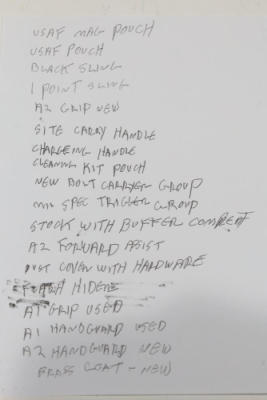 USAF MAG POUCH
USAF POUCH
BLACK SLING
1 POINT SLING
A2 GRIP NEW
SITE CARRY HANDLE
CHARGEING HANDLE
CLEANING KIT POUCH
NEW BOLT CARRYER GROUP
MIL SPEC TRIGGER GROUP
STOCK WITH BUFFER
A2 FORWARD ASSIST
DUST COVER WITH HARDWARE
HIDER
A1 GRIP USED
A1 HANDGUARD USED
A2 HANDGUARD NEW
BRASS COAT - NEW